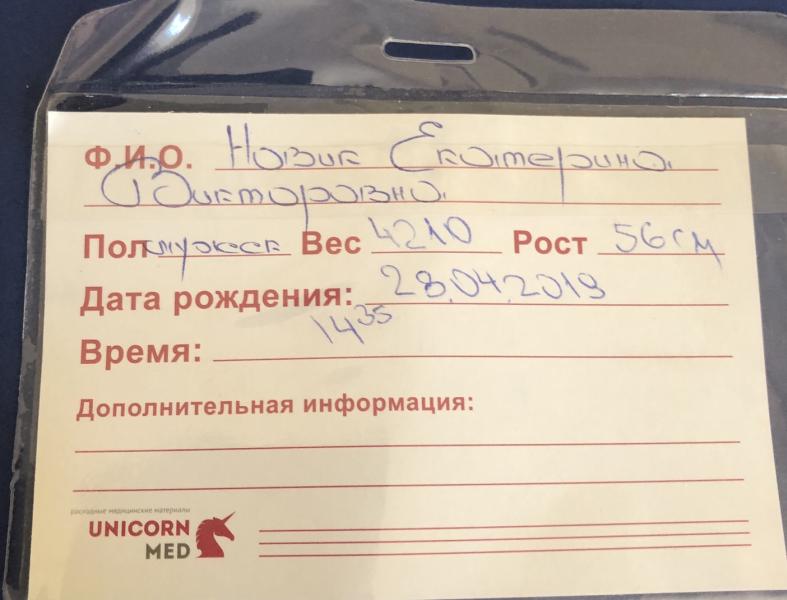 Ф.И.О. Новик Екатерина
Викторовна
Пол мужск Вес 4210 Рост 56 см
Дата рождения: 28.04.2019
Время: 14 35
Дополнительная информация:
расходные медицинские материалы
UNICORN
MED